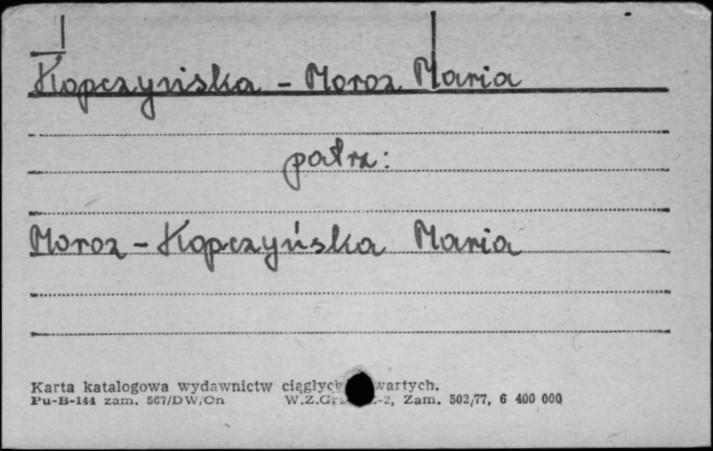 Kopczyńska - Moroz Maria
patrz:
Moroz - Kopczyńska Maria
Karta katalogowa wydawnictw ciągłych
Pu-B-144 zam. 567/DW/On W.Z.Gr -2, Zam. 502/77, 6 400 000